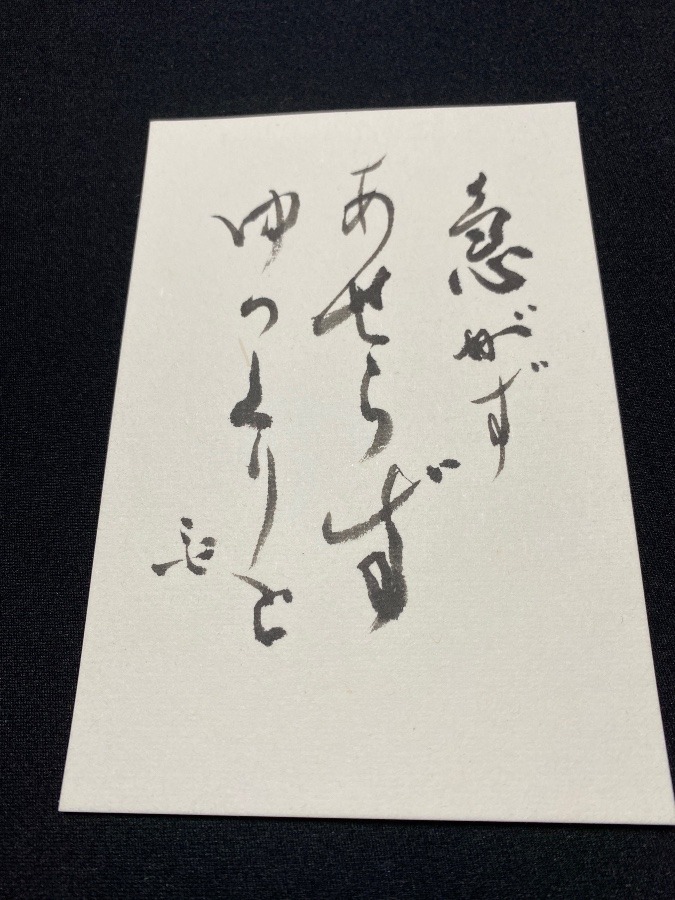 急がず
あせらず
ゆっくりと